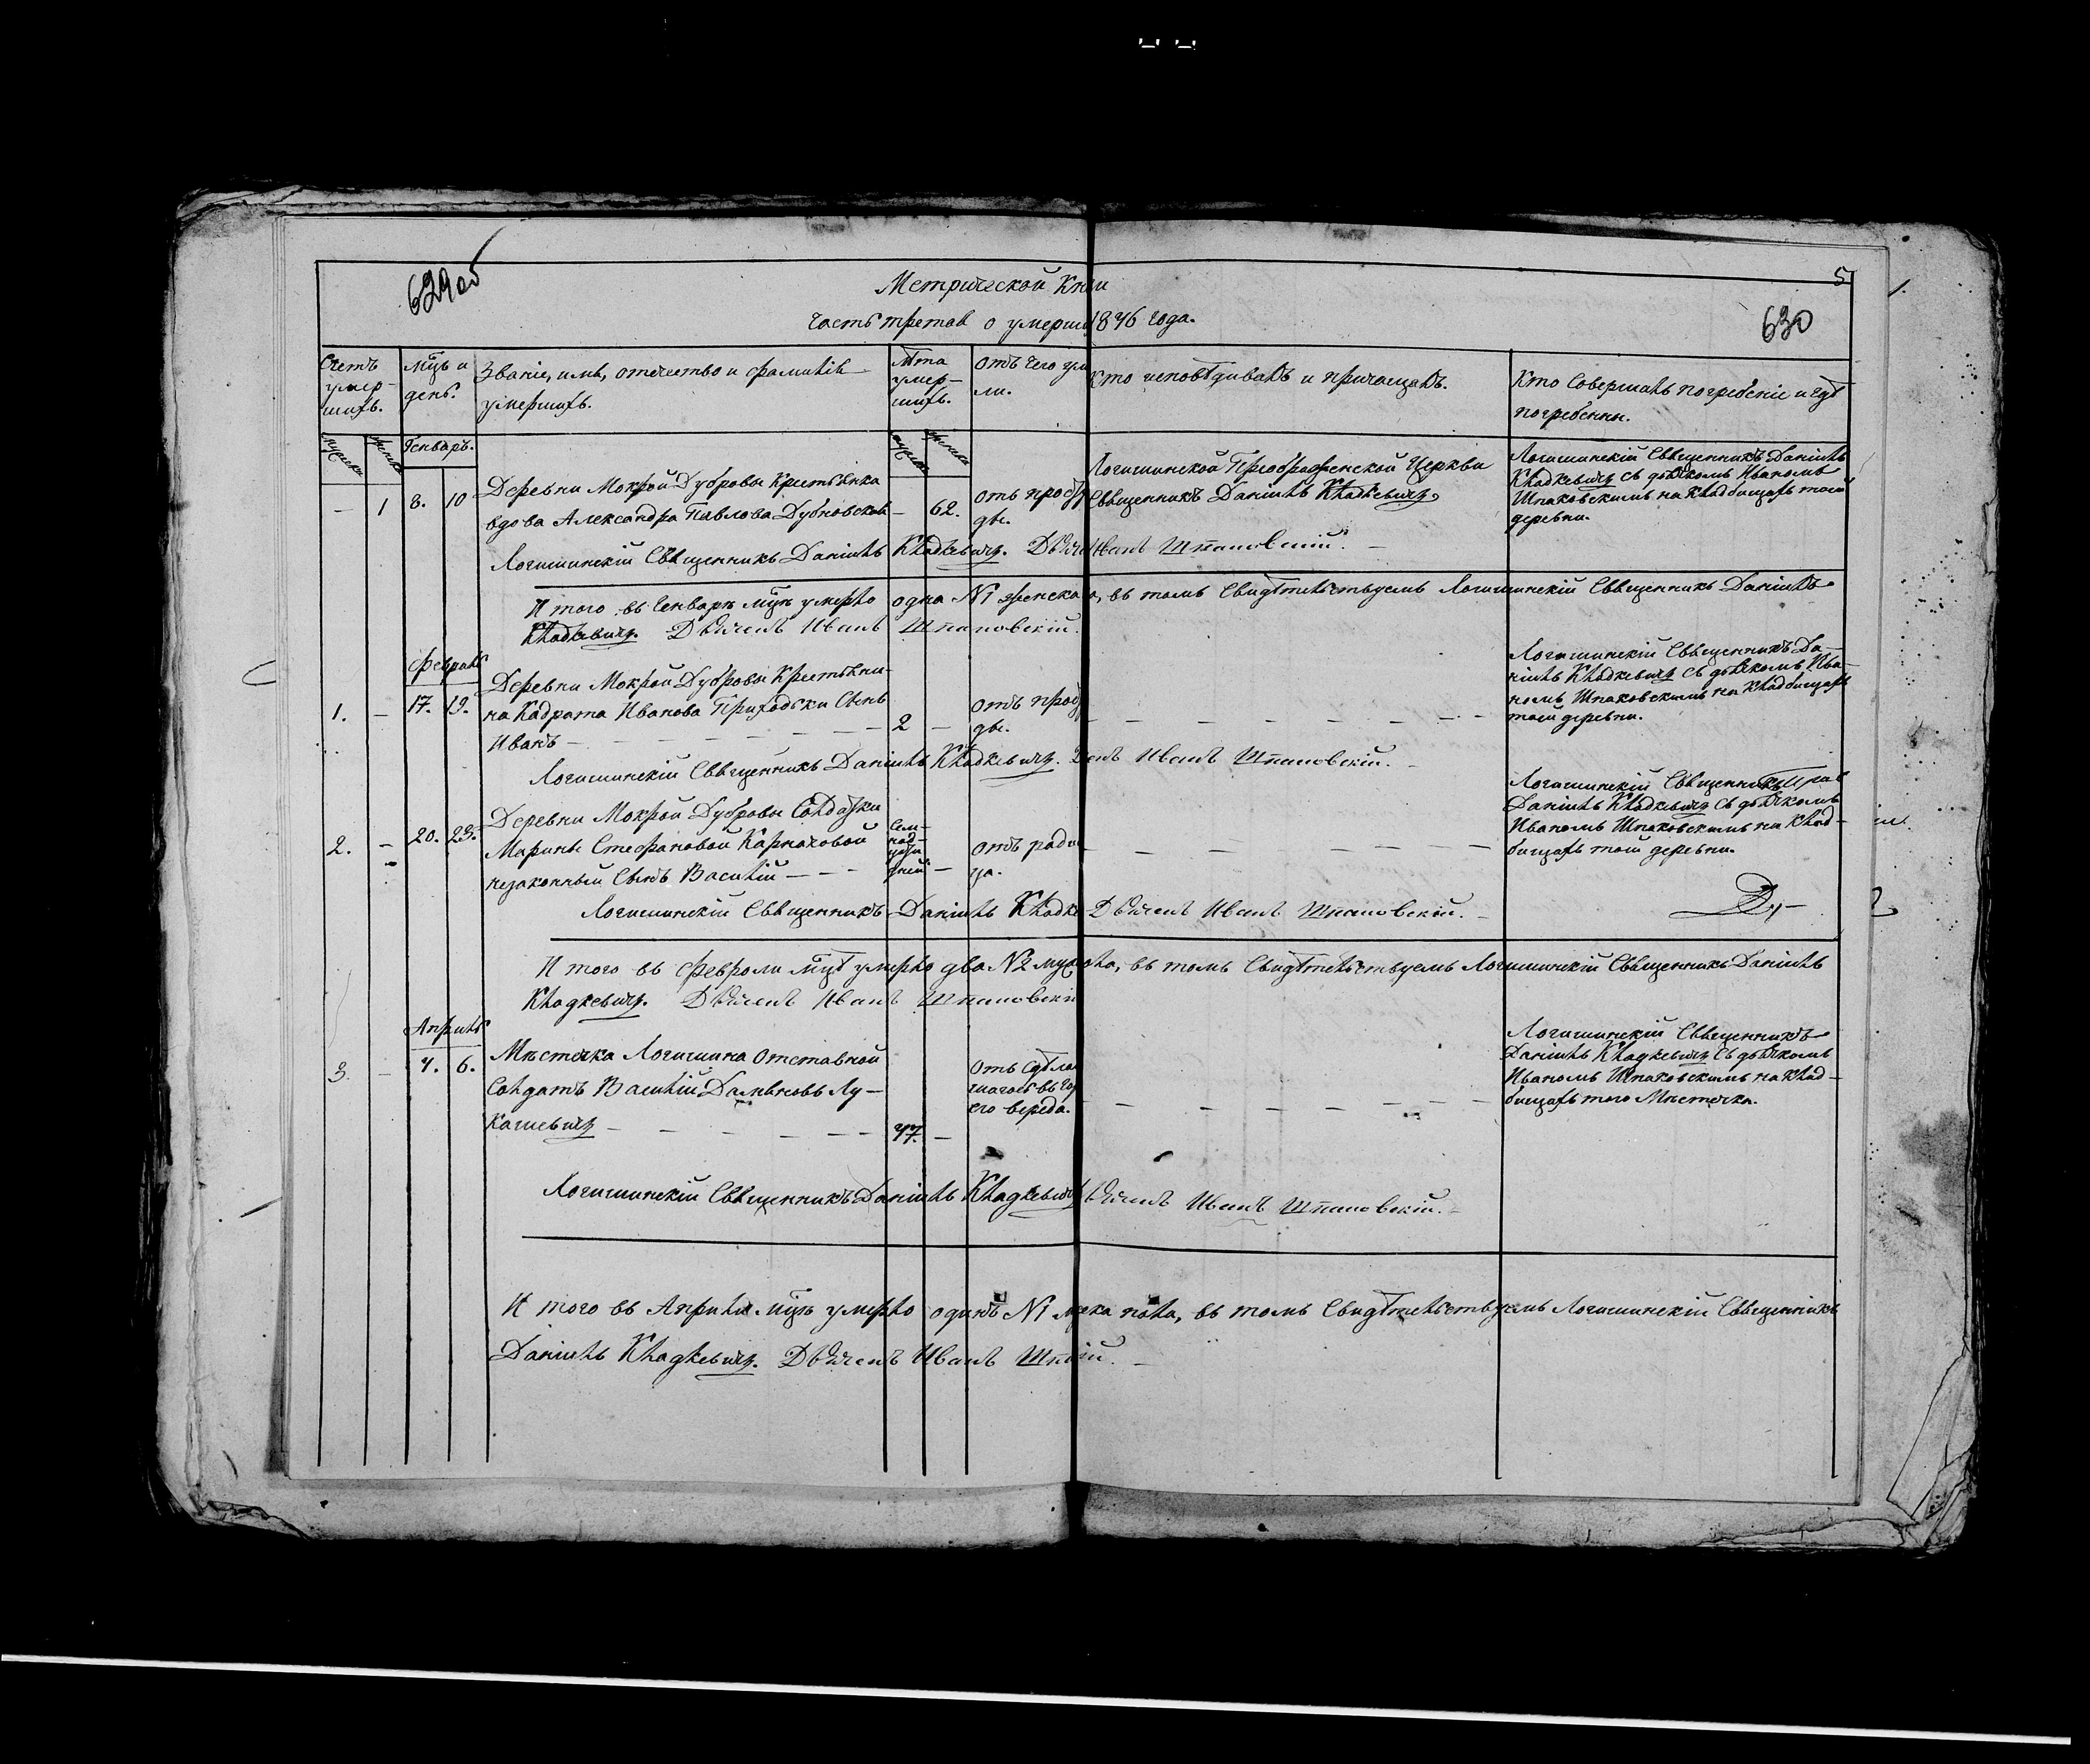 629 об
5
630
Метрической Кни
Часть третая о умерши 1846 года.
Счетъ умер-шихъ.
Мѣц. и день.
Званіе, имя, отчество и фамилія
умершихъ.
Лѣта умер-шихъ.
Отъ чего ум
ли.
Кто исповѣдывалъ и пріобщалъ.
Кто совершалъ погребеніе и гдѣ
погребенны.
Генварь.
– 1 8. 10
Деревни Мокрой Дубровы Крестьянка
вдова Александра Павлова Дубновская – 62.
отъ просту
ды.
Логишинской Преображенской Церкви
Священникъ Даніилъ Кладкевичъ
Логишинскій Священникъ Даніилъ
Кладкевичъ съ дьячкомъ Иваномъ
Шпаковскимъ на кладбищахъ той
деревни.
Логишинскій Священникъ Даніилъ Кладкевичъ. Дьяче Иванъ Шпаковскій.
И того въ Генварѣ мцѣ умерло одна №1 женска а, въ томъ свидѣтельствуемъ Логишинскій Священникъ Даніилъ
Кладкевичъ. Дьячекъ Иванъ Шпаковскій.
Февраль
1. – 17. 19.
Деревни Мокрой Дубровы Крестьяни-
на Кадрата Иванова Приходьки сынъ
Иванъ – 2 –
отъ прост
ды.
Логишинскій Священникъ Да-
ніилъ Кладкевичъ съ дьячкомъ Ива-
номъ Шпаковскимъ на кладбищахъ
той деревни.
Логишинскій Священникъ Даніилъ Кладкевичъ. Иванъ Шпаковскій.
2. – 20. 23.
Деревни Мокрой Дубровы Солдатки
Марины Стефановой Карпачовой
незаконный сынъ Василій – – –
Сем-
над-
цати
дней –
отъ роди
ца.
Логишинскій Священникъ
Даніилъ Кладкевичъ съ дьячкомъ
Иваномъ Шпаковскимъ на клад-
бищахъ той деревни.
Логишинскій Священникъ Даніилъ Кладке Дьячекъ Иванъ Шпаковскій.
И того въ Февроли мцѣ умерло два №2 муж ола, въ томъ свидѣтельствуемъ Логишинскій Священникъ Даніилъ
Кладкевичъ. Дьячекъ Иванъ Шпаковскі
Апрѣль
3. – 4. 6.
Мѣстечка Логишина отставной
Солдатъ Василій Дамьяновъ Лу-
кашевичъ – 47. –
отъ сдѣла
шагося въ го
его вереда.
Логишинскій Священникъ
Даніилъ Кладкевичъ съ дьячкомъ
Иваномъ Шпаковскимъ на клад-
бищахъ того Мѣстечка.
Логишинскій Священникъ Даніилъ Кладкевичъ Дьячекъ Иванъ Шпаковскій.
И того въ Апрѣли мцѣ умерло одинъ №1 мска пола, въ томъ свидѣтельствуемъ Логишинскій Священникъ
Даніилъ Кладкевичъ. Дьячекъ Иванъ Шп ій.